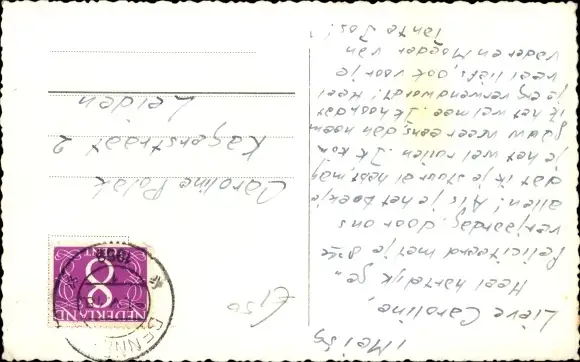 1 Mei 59
Lieve Caroline,
Heel hartelijk ge-
feliciteerd met je 5e
verjaardag, door ons
allen! Als je het boekje
dat ik je stuur al hebt, mag
je het wel ruilen. Ik kom
gauw weer eens, dan neem
ik het wel mee. Ik hoop dat
je erg verwend wordt! Heel
veel liefs, ook voor je
vader en Moeder van
tante Jos!
Caroline Polak
Kagerstraat 2
Leiden
NEDERLAND
8
CENT
1959
BENN
£1,50